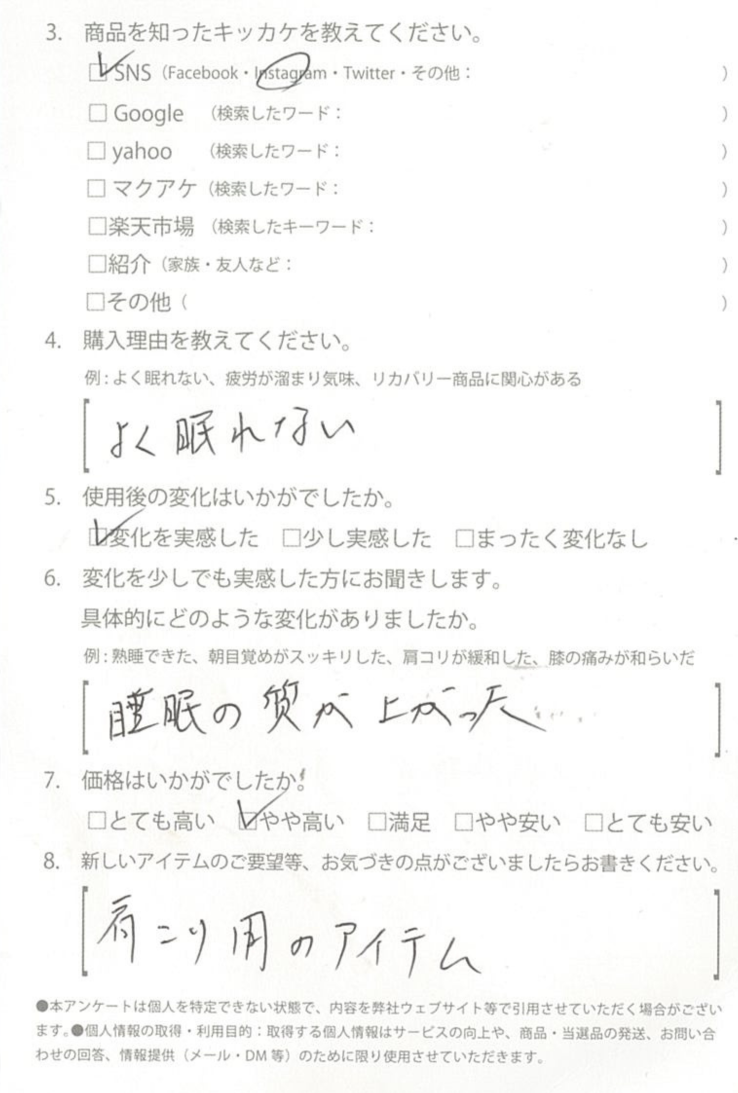 3. 商品を知ったキッカケを教えてください。
☑SNS（Facebook・Instagram・Twitter・その他：　）
□ Google （検索したワード：　）
□ yahoo （検索したワード：　）
□ マクアケ（検索したワード：　）
□楽天市場（検索したキーワード：　）
□紹介（家族・友人など：　）
□その他（　）
4. 購入理由を教えてください。
例：よく眠れない、疲労が溜まり気味、リカバリー商品に関心がある
よく眠れない
5. 使用後の変化はいかがでしたか。
☑変化を実感した □少し実感した □まったく変化なし
6. 変化を少しでも実感した方にお聞きします。
具体的にどのような変化がありましたか。
例：熟睡できた、朝目覚めがスッキリした、肩コリが緩和した、膝の痛みが和らいだ
睡眠の質が上がった
7. 価格はいかがでしたか。
□とても高い ☑やや高い □満足 □やや安い □とても安い
8. 新しいアイテムのご要望等、お気づきの点がございましたらお書きください。
肩こり用のアイテム
●本アンケートは個人を特定できない状態で、内容を弊社ウェブサイト等で引用させていただく場合がござい
ます。●個人情報の取得・利用目的：取得する個人情報はサービスの向上や、商品・当選品の発送、お問い合
わせの回答、情報提供（メール・DM 等）のために限り使用させていただきます。